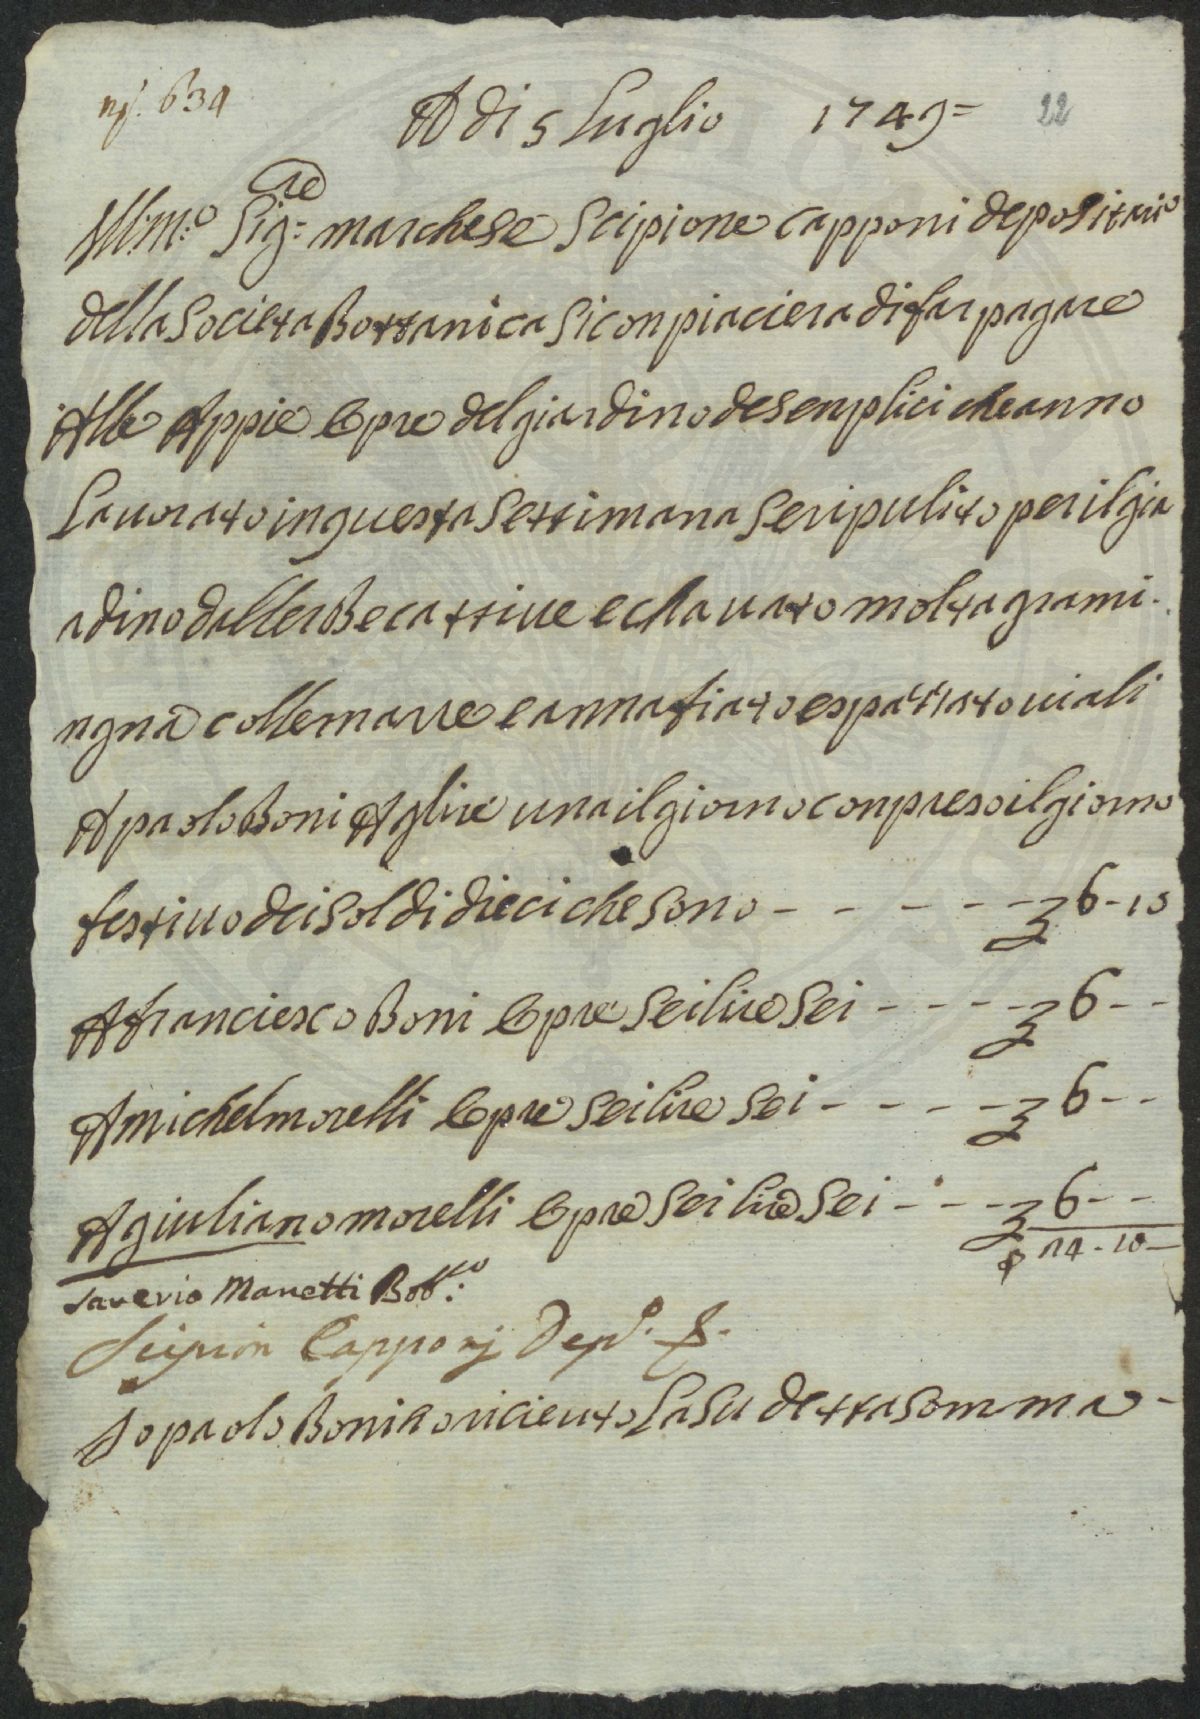 nº. 634
A di 5 Luglio 1749=
22
Ill:mo Sig:re marchese Scipione capponi depositario
della Societa Bottanica Si conpiaciera di far pagare
Alle Appie Opre del giardino de senplici che anno
Lauorato in questa Settimana Se ripulito per il gia
adino dallerBe cattiue e chauato molta grami-
ngna colle marre e annafiato e spattato uiali
A paolo Boni A glire una il giorno conpreso il giorno
festiuo dei soldi dieci che sono - - - - - 6-10
A franciesco Boni Opre Sei lire Sei - - - - 6 - -
A michel morelli Opre Sei lire Sei - - - - - 6 - -
A giuliano morelli Opre Sei lire Sei - - - - 6 - -
24-10-
Saverio Manetti Bot:co
Scipion Capponj Dep.º
Io paolo Boni o riceuto La Su detta Somma -